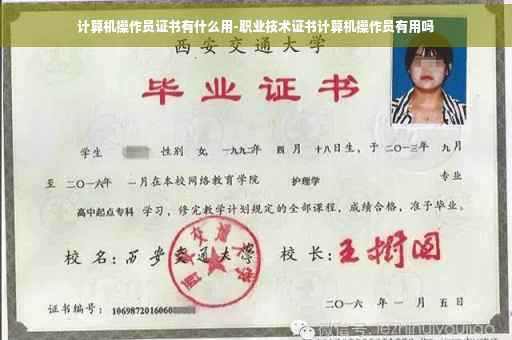 计算机操作员证书有什么用-职业技术证书计算机操作员有用吗
西安交通大学
毕业证书
学生 性别 女, 一九九二年 四月 十八日生, 于二〇一三年 九月
至 二〇一六年 一月在本校网络教育学院 护理学 专业
高中起点专科 学习, 修完教学计划规定的全部课程, 成绩合格, 准予毕业。
校名: 西安交通大学 校长: 王树国
西安交通大学
证书编号: 1069872016060
二〇一六年一月五日
微信号: jezhihuiyoujiao